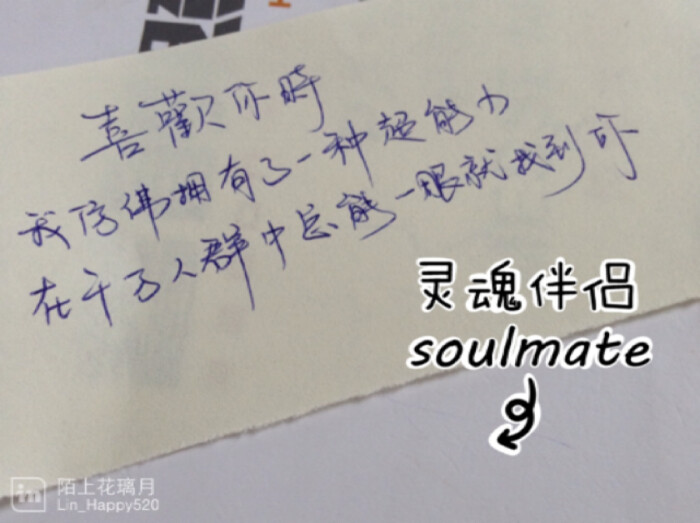 喜歡你時
我彷佛拥有了一种超能力
在千万人群中总能一眼就找到你
灵魂伴侣
soulmate
in
陌上花璃月
Lin_Happy520